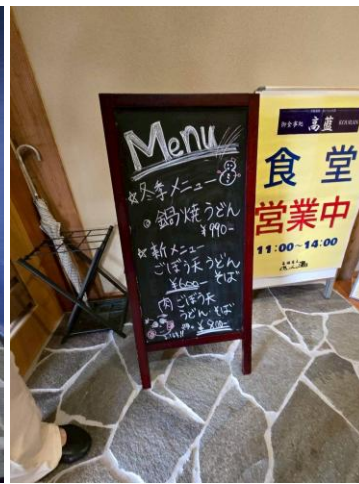 Menu
☆冬季メニュー
◎鍋焼うどん
¥990-
☆新メニュー
ごぼう天うどん
そば
¥600-
肉ごぼう天
うどん・そば
¥900-
御食事処 高藍
食堂
営業中
11:00~14:00